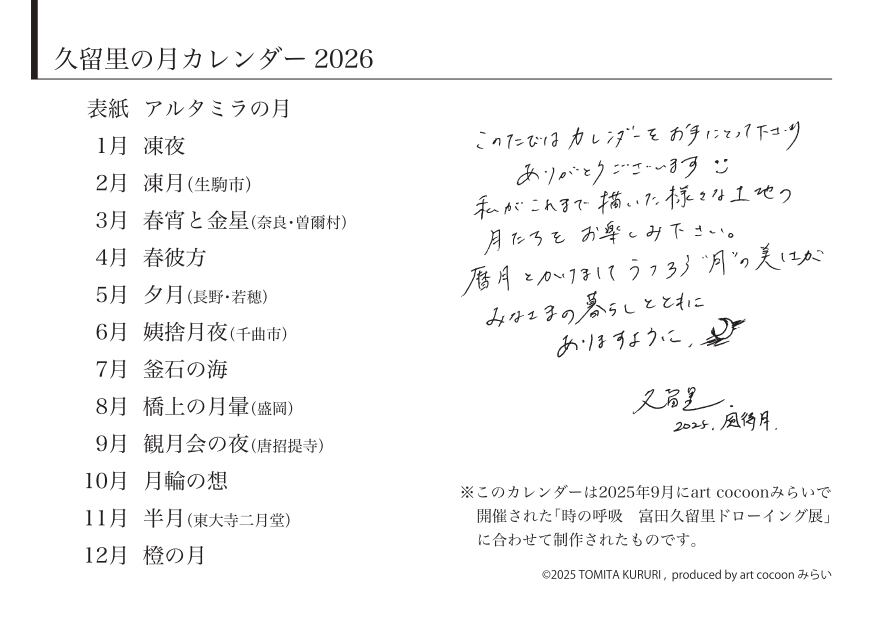 久留里の月カレンダー 2026
表紙 アルタミラの月
1月 凍夜
2月 凍月(生駒市)
3月 春宵と金星(奈良・曽爾村)
4月 春彼方
5月 夕月(長野・若穂)
6月 姨捨月夜(千曲市)
7月 釜石の海
8月 橋上の月暈(盛岡)
9月 観月会の夜(唐招提寺)
10月 月輪の想
11月 半月(東大寺二月堂)
12月 橙の月
このたびは カレンダーを お手にとって下さり
ありがとうございます
私がこれまで描いた様々な土地の
月たちを お楽しみ下さい。
暦月とかけまして うつろう"月"の美しさが
みなさまの暮らしとともに
ありますように、
久留里.
2025. 風待月.
※このカレンダーは2025年9月にart cocoonみらいで
開催された「時の呼吸 富田久留里ドローイング展」
に合わせて制作されたものです。
©2025 TOMITA KURURI , produced by art cocoon みらい